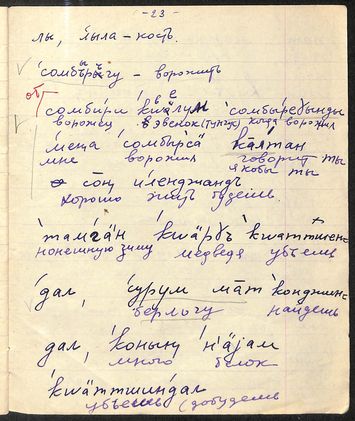 - 23 -
лы, лыла – кость.
сомбърьгу – ворожить
сомбири кwäлун сомбыребынды
ворожец в эвенок (тунгус) когда ворожил
меңа сомбырса кäлтан
мне ворожил говорит ты
якобы ты
соң иленджандъ
хорошо жить будешь.
тамгän кwäргъ кwаттшен-
нонешную зиму медведя убьешь
дал, сурум мāт конджин-
берлогу найдешь
дал, коның н'äjам
много белок
кwäттшиндал
убьешь (добудешь